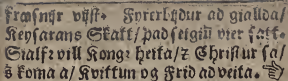 frœsnyr vyst. Fyrerlydur ad gialda/
Keysarans Skatt/ þad seigiū vier satt.
Sialfr vill Kongr heita/ ⁊ Christur sa/
s̄ koma a/ Kvittun og Frid ad veita. ☞